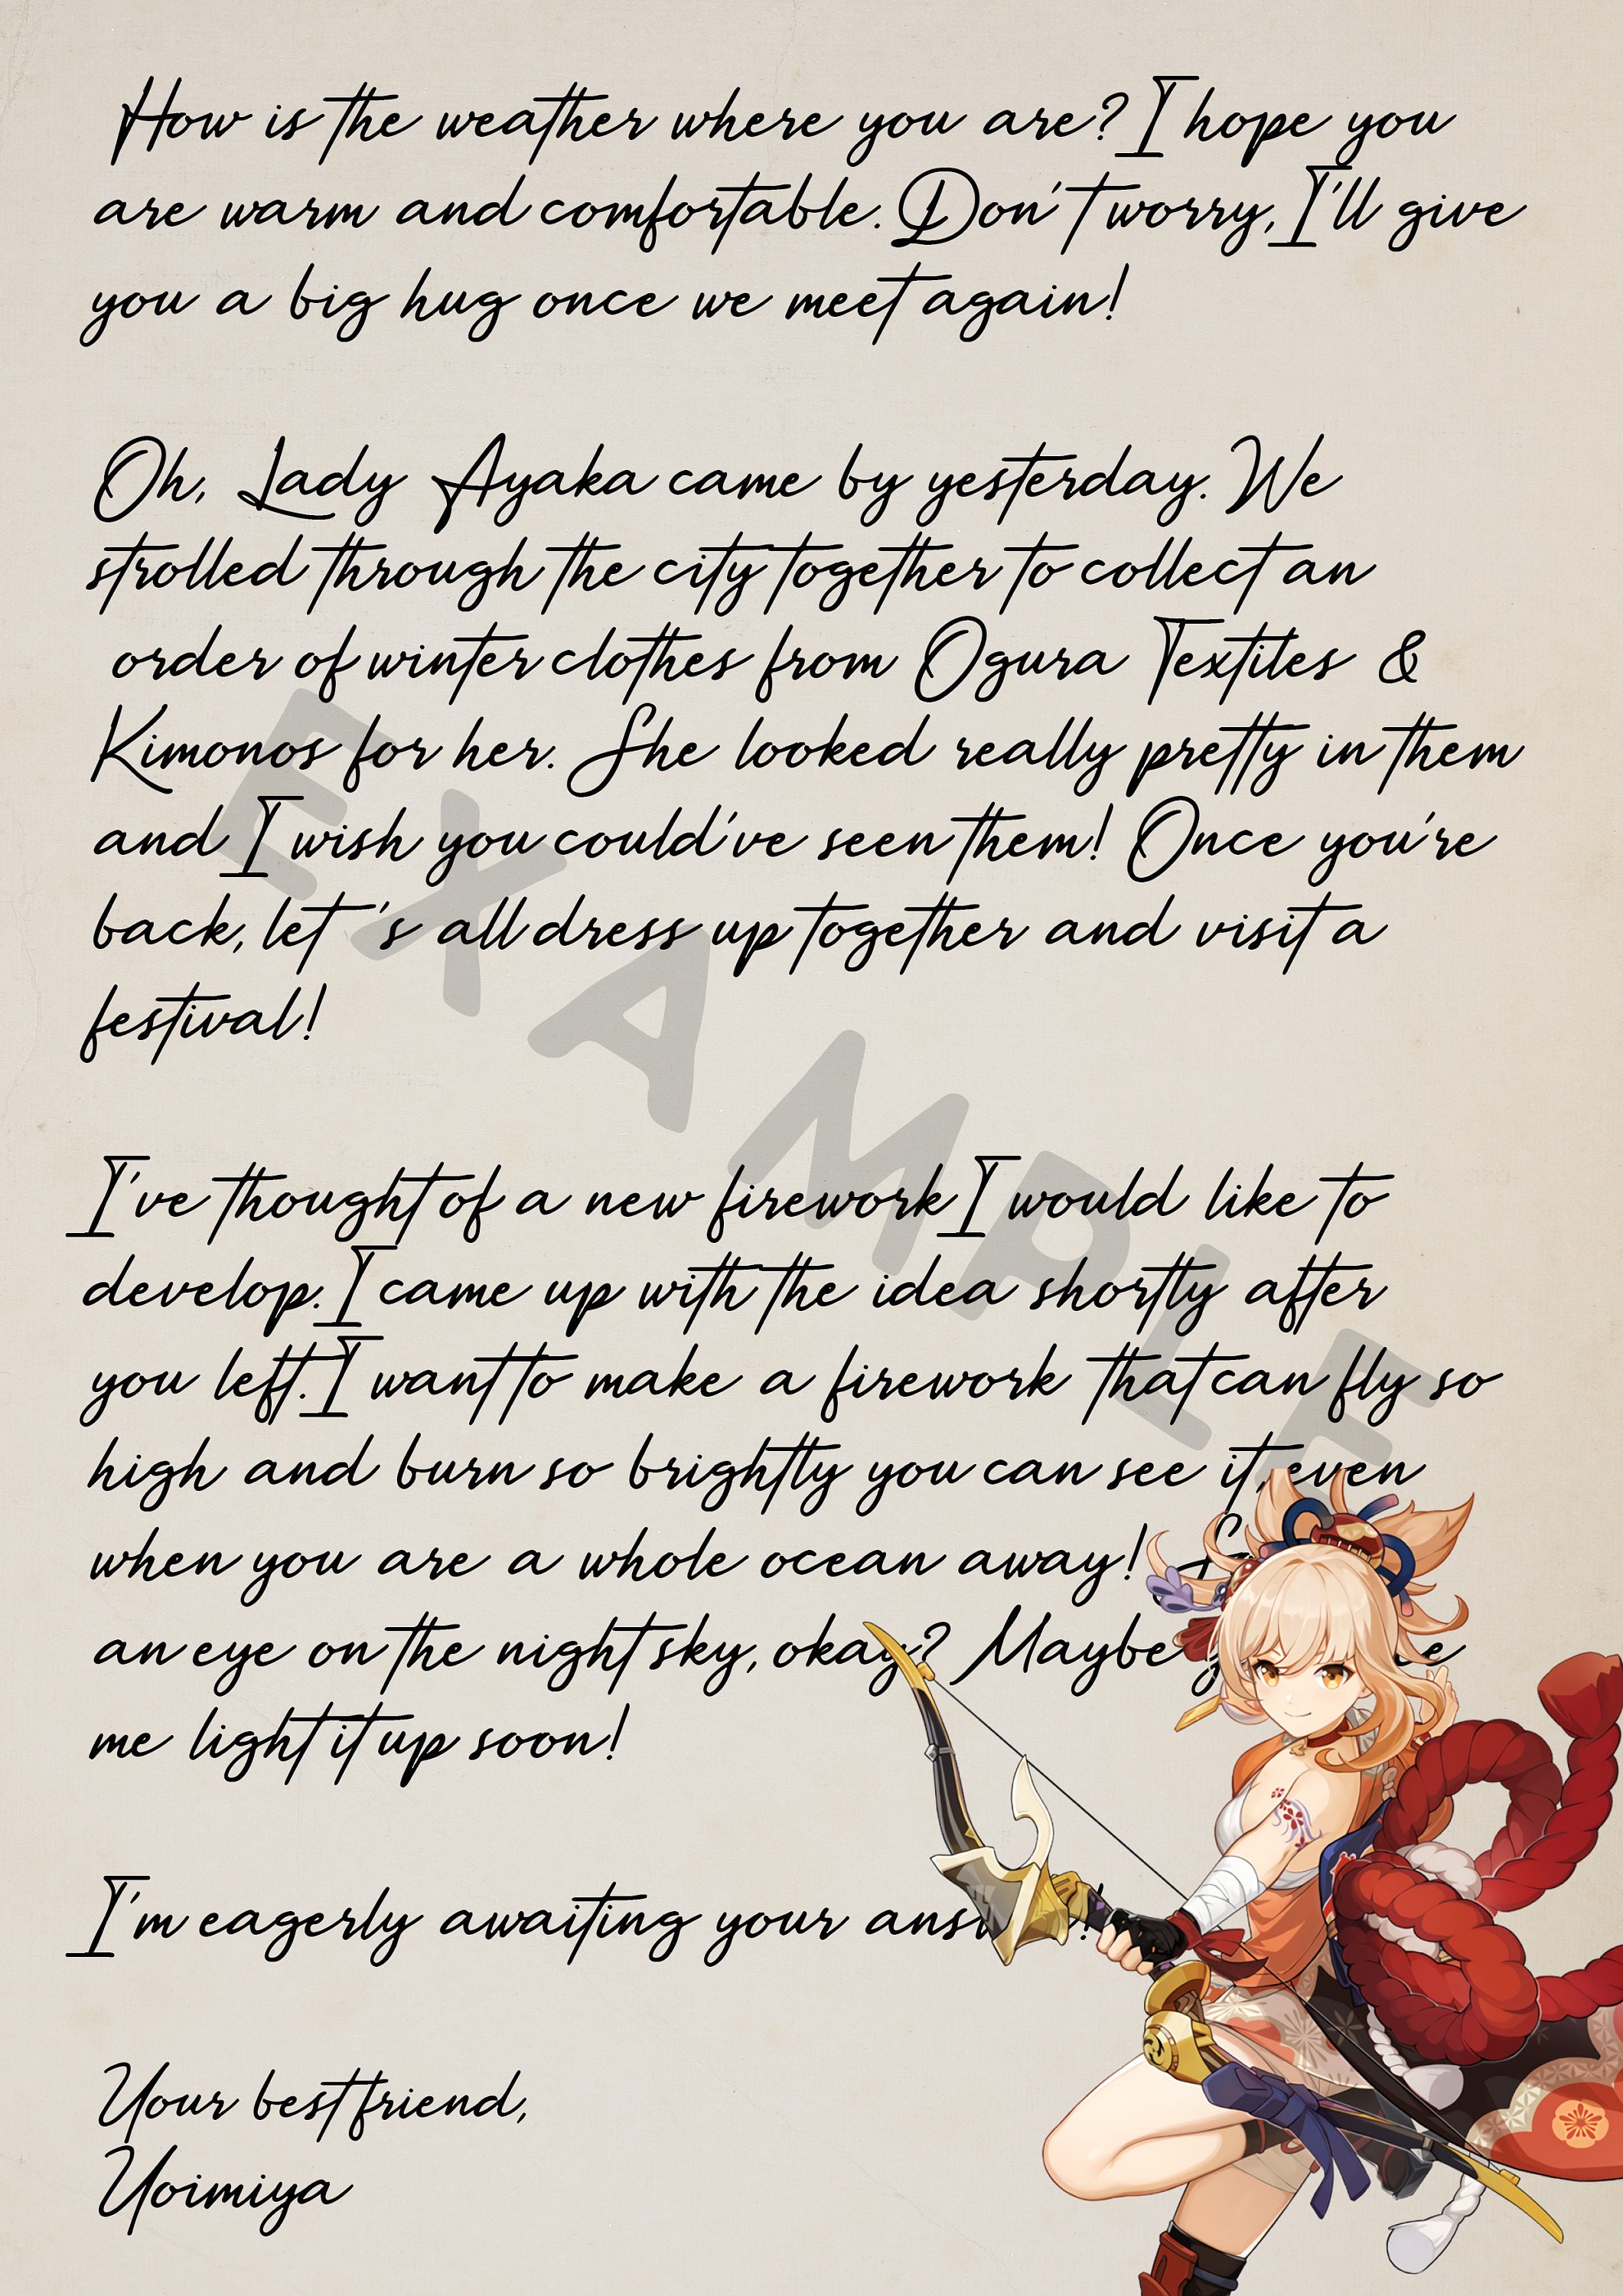 How is the weather where you are? I hope you
are warm and comfortable. Don't worry, I'll give
you a big hug once we meet again!
Oh, Lady Ayaka came by yesterday. We
strolled through the city together to collect an
order of winter clothes from Ogura Textiles &
Kimonos for her. She looked really pretty in them
and I wish you could've seen them! Once you're
back, let's all dress up together and visit a
festival!
I've thought of a new firework I would like to
develop. I came up with the idea shortly after
you left. I want to make a firework that can fly so
high and burn so brightly you can see it, even
when you are a whole ocean away!
an eye on the night sky, okay? Maybe
me light it up soon!
I'm eagerly awaiting your
Your best friend,
Yoimiya
EXAMPLE